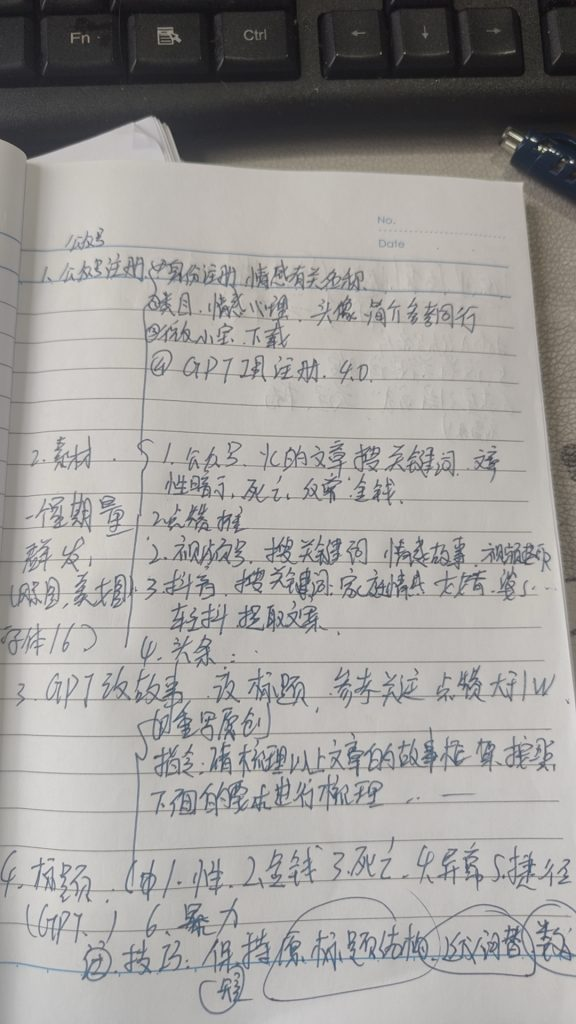 Fn
Ctrl
←
↓
→
No.
Date
公众号
1. 公众号注册 ①身份注册 情感有关名称
②类目. 情感心理. 头像 简介参考同行
小宝. 下载
④ GPT 注册. 4.0.
2. 素材. 1. 公众号. 的文章 搜关键词.
性暗示, 死亡, 金钱.
一个星期量 2. 点赞
群发, 2. 视频号, 搜关键词 情感故事.
3. 抖音, 搜关键词. 家庭情感
字体16) 轻抖 提取文案.
4. 头条..
3. GPT改故事. 标题, 参考关注 点赞大于1W
的重写原创
指令: 请梳理以上文章的故事框架. 按照
下面的要求进行梳理 .. —
4. 标题. 1. 性. 2. 金钱 3. 死亡. 4. 异常 5. 捷径
(GPT.) 6. 暴力
技巧: 保持原标题结构. 词替